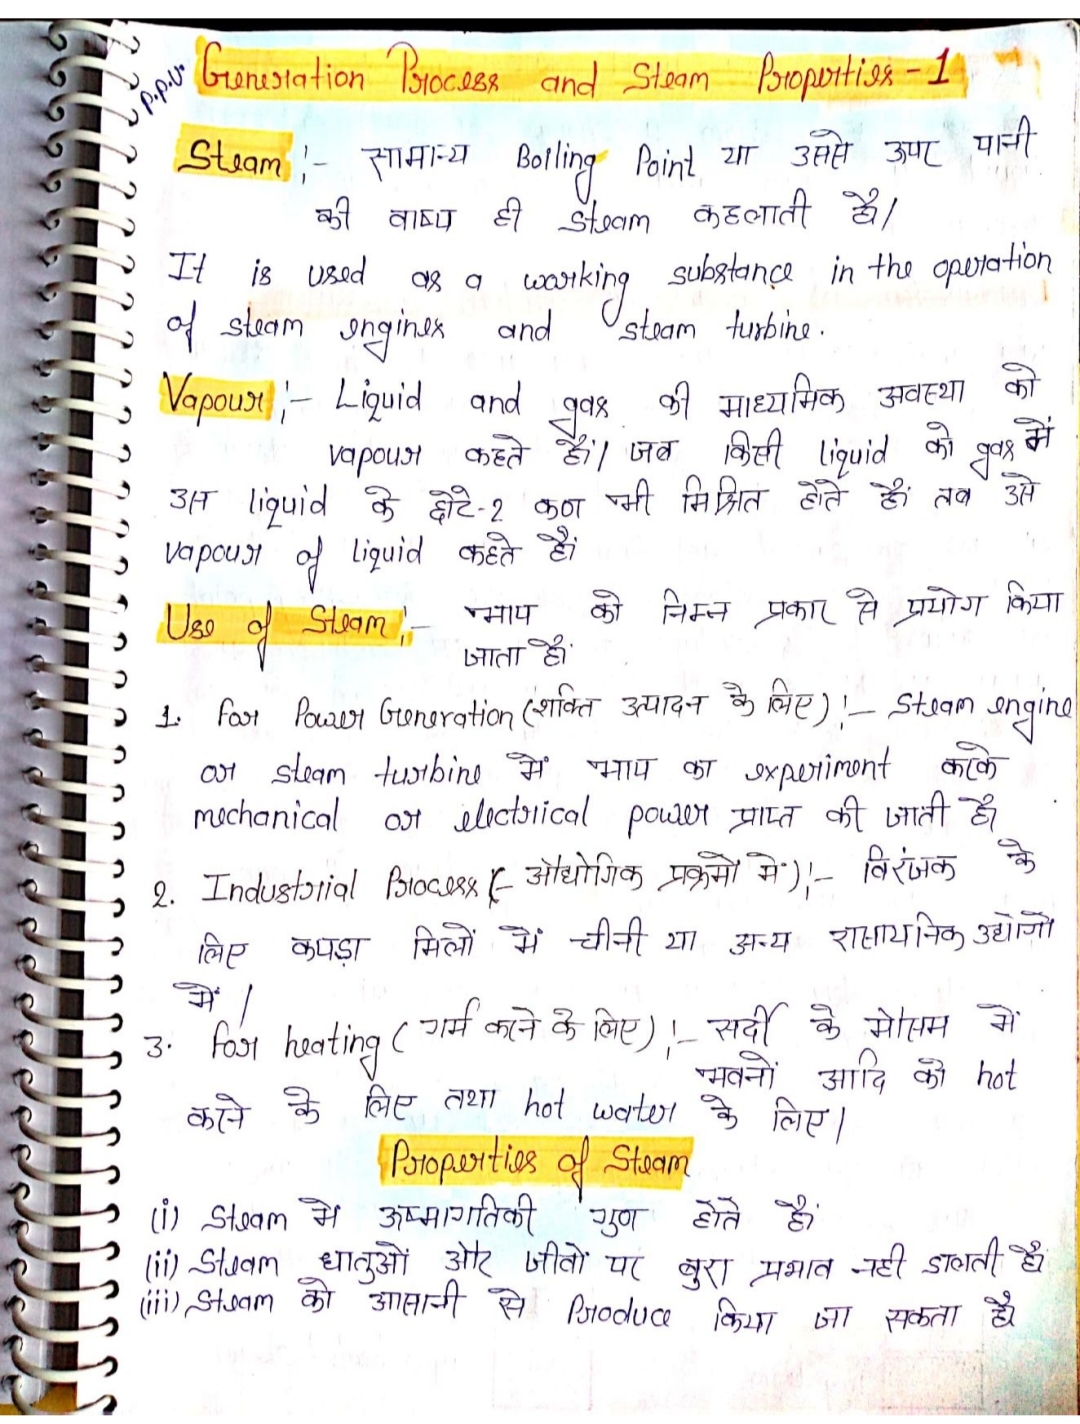 P.P.U.
Generation Process and Steam Properties - 1
Steam :- सामान्य Boiling Point या उससे ऊपर पानी
की वाष्प ही steam कहलाती है।
It is used as a working substance in the operation
of steam engines and steam turbine.
Vapour :- Liquid and gas की माध्यमिक अवस्था को
vapour कहते हैं। जब किसी liquid को gas में
उस liquid के छोटे-2 कण भी मिश्रित होते हैं तब उसे
vapour of liquid कहते हैं
Use of Steam :- भाप को निम्न प्रकार से प्रयोग किया
जाता है
1. for Power Generation (शक्ति उत्पादन के लिए) :- Steam engine
or steam turbine में भाप का experiment करके
mechanical or electrical power प्राप्त की जाती है
2. Industrial Process (- औद्योगिक प्रक्रमों में) :- विरंजक के
लिए कपड़ा मिलों में चीनी या अन्य रासायनिक उद्योगो
में।
3. for heating (गर्म करने के लिए) :- सर्दी के मौसम में
भवनों आदि को hot
करने के लिए तथा hot water के लिए।
Properties of Steam
(i) Steam मे ऊष्मागतिकी गुण होते हैं
(ii) Steam धातुओं और जीवों पर बुरा प्रभाव नही डालती है
(iii) Steam को आसानी से Produce किया जा सकता है